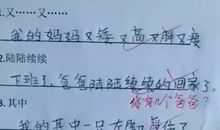 1.又……又……
我的妈妈又矮又高又胖又瘦
2.陆陆续续
下班了,爸爸陆陆续续的回家了。
3.其中
你有几个爸爸?
我的其中一只左脚受伤了